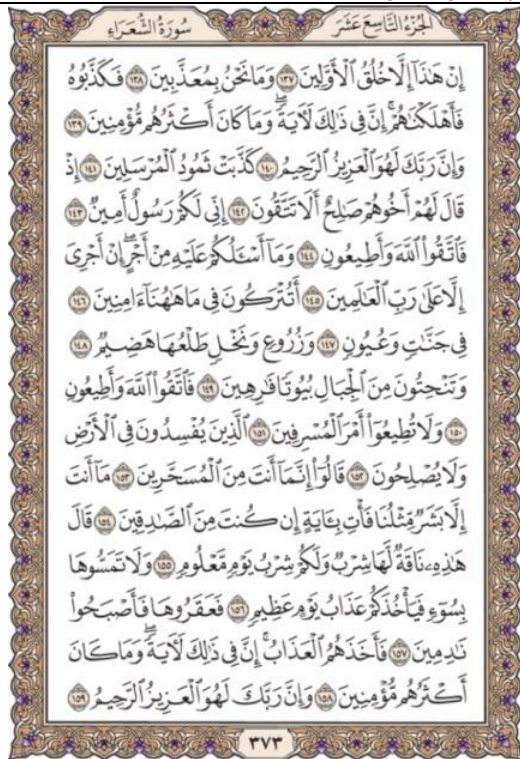 الجُزْءُ التَّاسِعَ عَشَرَ
سُورَةُ الشُّعَرَاءِ
إِنْ هَٰذَآ إِلَّا خُلُقُ ٱلْأَوَّلِينَ ١٣٧ وَمَا نَحْنُ بِمُعَذَّبِينَ ١٣٨ فَكَذَّبُوهُ
فَأَهْلَكْنَٰهُمْۚ إِنَّ فِى ذَٰلِكَ لَءَايَةًۖ وَمَا كَانَ أَكْثَرُهُم مُّؤْمِنِينَ ١٣٩
وَإِنَّ رَبَّكَ لَهُوَ ٱلْعَزِيزُ ٱلرَّحِيمُ ١٤٠ كَذَّبَتْ ثَمُودُ ٱلْمُرْسَلِينَ ١٤١ إِذْ
قَالَ لَهُمْ أَخُوهُمْ صَٰلِحٌ أَلَا تَتَّقُونَ ١٤٢ إِنِّى لَكُمْ رَسُولٌ أَمِينٌ ١٤٣
فَٱتَّقُوا۟ ٱللَّهَ وَأَطِيعُونِ ١٤٤ وَمَآ أَسْـَٔلُكُمْ عَلَيْهِ مِنْ أَجْرٍۖ إِنْ أَجْرِىَ
إِلَّا عَلَىٰ رَبِّ ٱلْعَٰلَمِينَ ١٤٥ أَتُتْرَكُونَ فِى مَا هَٰهُنَآ ءَامِنِينَ ١٤٦
فِى جَنَّٰتٍ وَعُيُونٍ ١٤٧ وَزُرُوعٍ وَنَخْلٍ طَلْعُهَا هَضِيمٌ ١٤٨
وَتَنْحِتُونَ مِنَ ٱلْجِبَالِ بُيُوتًا فَٰرِهِينَ ١٤٩ فَٱتَّقُوا۟ ٱللَّهَ وَأَطِيعُونِ
١٥٠ وَلَا تُطِيعُوٓا۟ أَمْرَ ٱلْمُسْرِفِينَ ١٥١ ٱلَّذِينَ يُفْسِدُونَ فِى ٱلْأَرْضِ
وَلَا يُصْلِحُونَ ١٥٢ قَالُوٓا۟ إِنَّمَآ أَنتَ مِنَ ٱلْمُسَحَّرِينَ ١٥٣ مَآ أَنتَ
إِلَّا بَشَرٌ مِّثْلُنَا فَأْتِ بِـَٔايَةٍ إِن كُنتَ مِنَ ٱلصَّٰدِقِينَ ١٥٤ قَالَ
هَٰذِهِۦ نَاقَةٌ لَّهَا شِرْبٌ وَلَكُمْ شِرْبُ يَوْمٍ مَّعْلُومٍ ١٥٥ وَلَا تَمَسُّوهَا
بِسُوٓءٍ فَيَأْخُذَكُمْ عَذَابُ يَوْمٍ عَظِيمٍ ١٥٦ فَعَقَرُوهَا فَأَصْبَحُوا۟
نَٰدِمِينَ ١٥٧ فَأَخَذَهُمُ ٱلْعَذَابُۚ إِنَّ فِى ذَٰلِكَ لَءَايَةًۖ وَمَا كَانَ
أَكْثَرُهُم مُّؤْمِنِينَ ١٥٨ وَإِنَّ رَبَّكَ لَهُوَ ٱلْعَزِيزُ ٱلرَّحِيمُ ١٥٩
٣٧٣